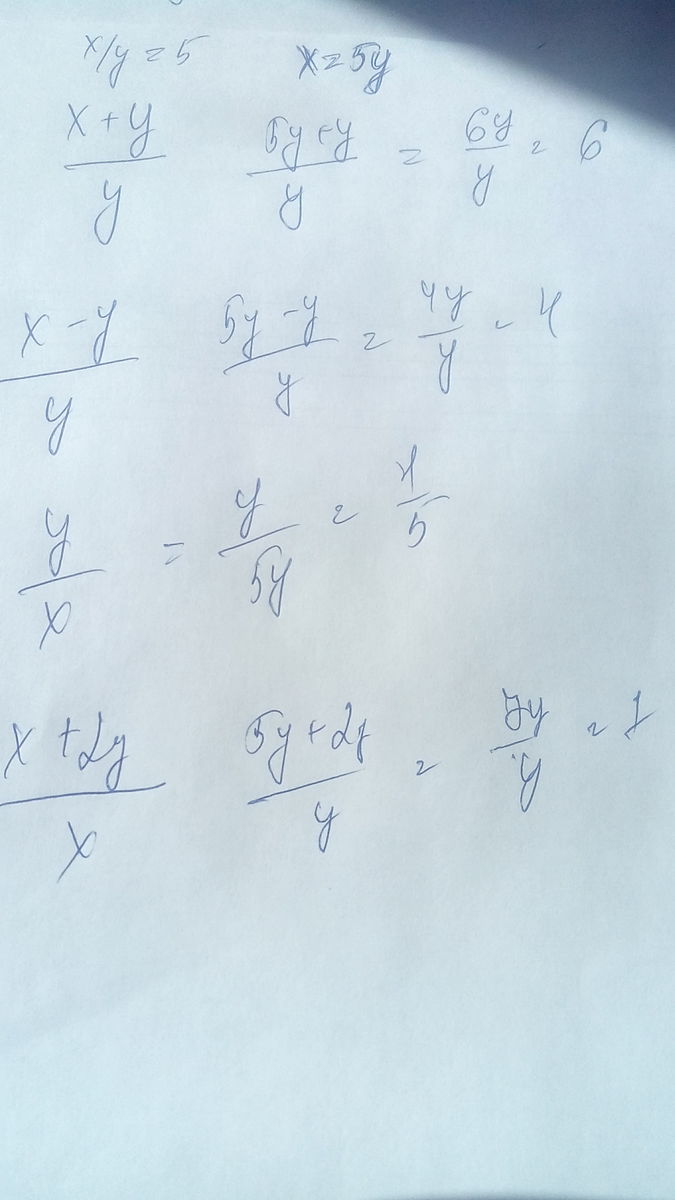 x/y = 5 x = 5y
(x + y)/y (5y + y)/y = 6y/y = 6
(x - y)/y (5y - y)/y = 4y/y = 4
y/x = y/5y = 1/5
(x + 2y)/x (5y + 2y)/y = 7y/y = 7